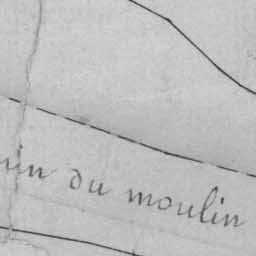 in du moulin